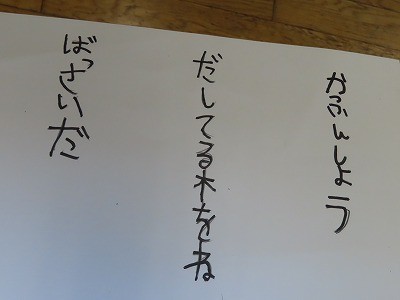 かふんしょう
だしてる木をね
ばっさいだ